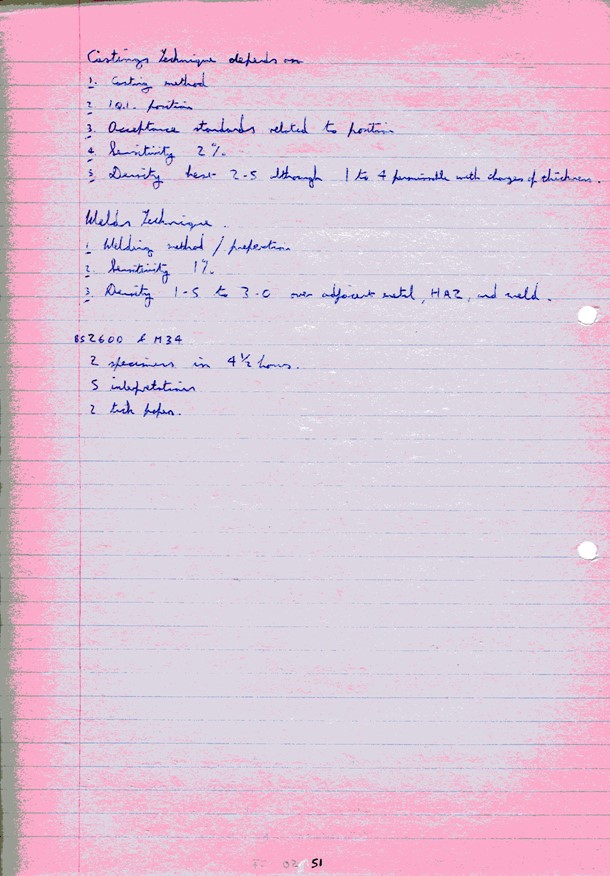 Castings Technique depends on
1. Casting method
2. I.Q.I. position
3. Acceptance standards related to position
4. Sensitivity 2%
5. Density best 2-5 although 1 to 4 permissible with changes of thickness.
Welds Technique.
1. Welding method / preparation
2. Sensitivity 1%
3. Density 1-5 to 3-0 over adjacent metal, HAZ, and weld.
BS2600 & M34
2 specimens in 4½ hours.
5 interpretations
2 tech papers.
02 51